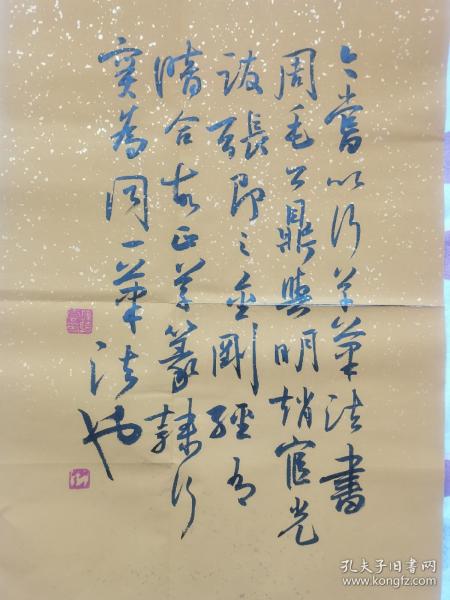 嘗以行草筆法書
周毛公鼎與明趙宧光
跋張即之金剛經
暗合故正草篆隸行
實為同一筆法也
孔夫子旧书网
www.kongfz.com